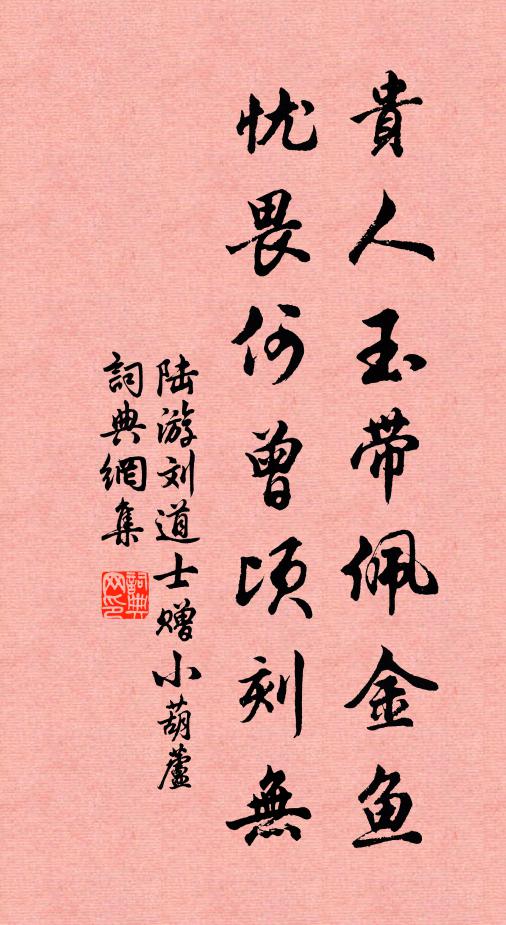 貴人玉带佩金鱼
忧畏何曾頃刻無
陆游刘道士赠小葫蘆
詞典網集
詞典网印